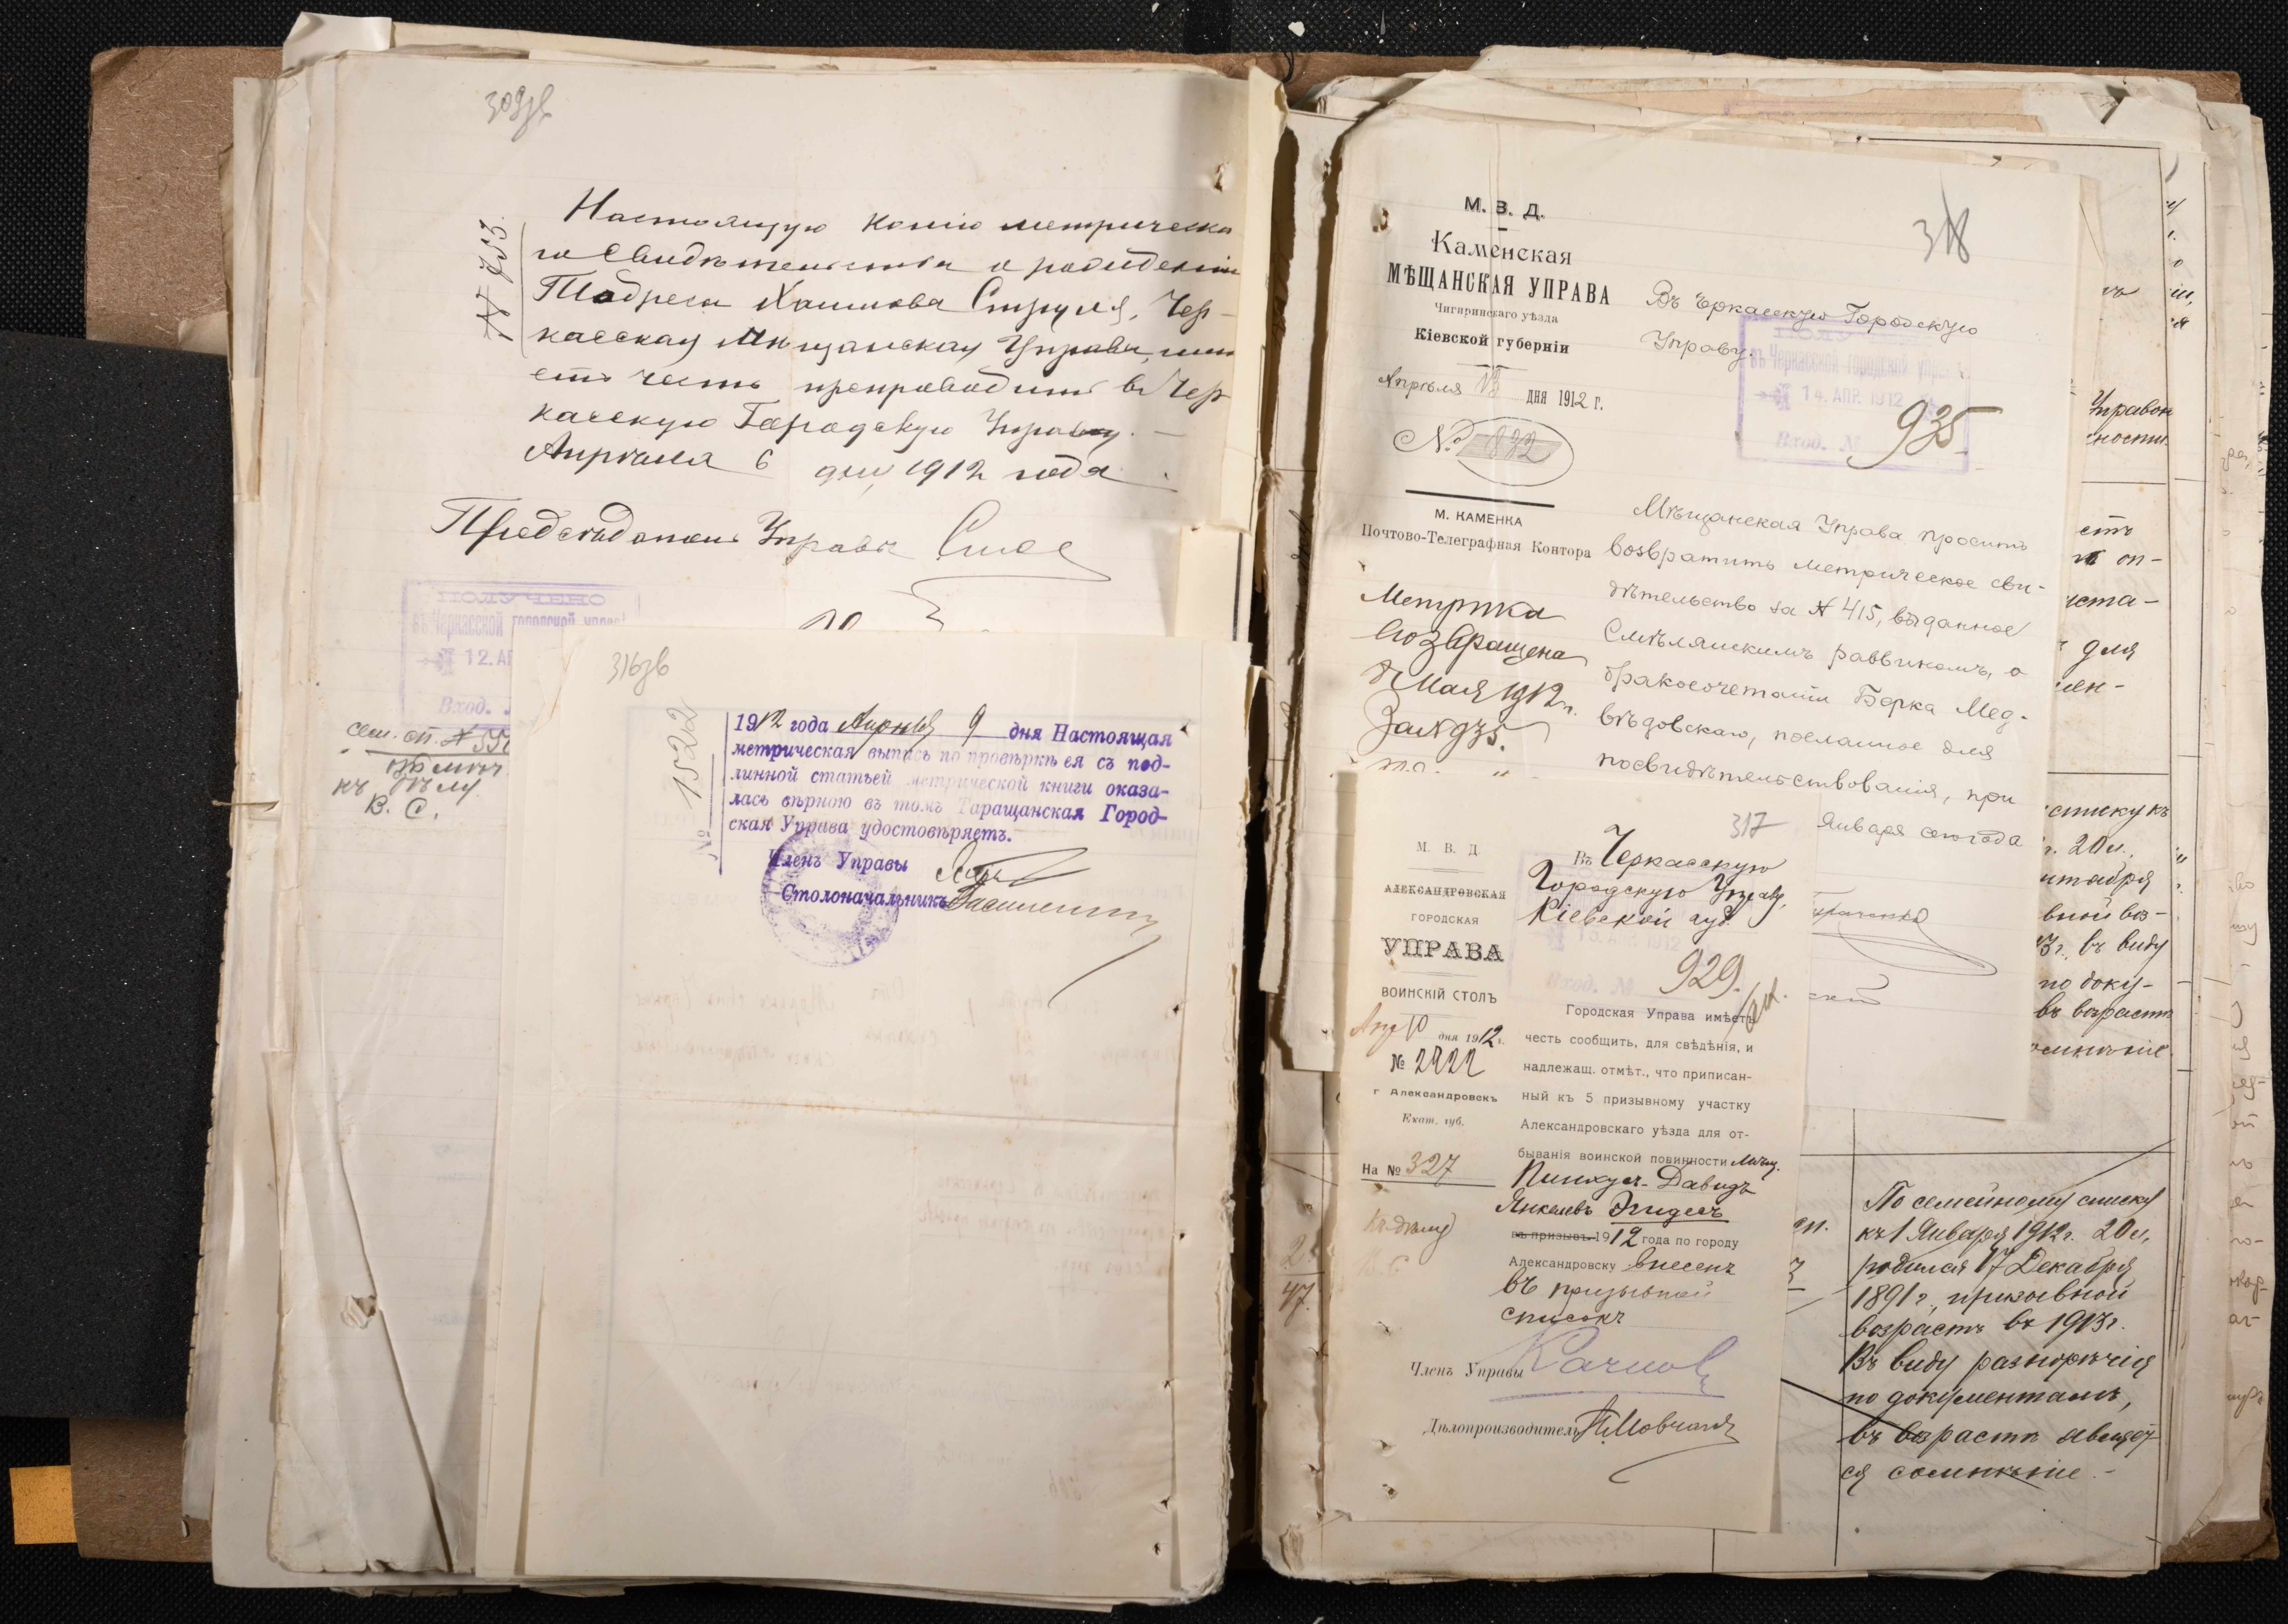 309зв
№ 753.
Настоящую копію метрическа
го свидѣтельства о рожденіи
Тодреса Хаимова Струля, Чер-
касская Мѣщанская Управа, имѣ
етъ честь препроводить въ Чер
касскую Городскую Управу. —
Апрѣля 6 дня 1912 года.
Предсѣдатель Управы
ПОЛУЧЕНО
въ Черкасской городской управѣ
12. АП
Вход.
сем. сп. №
къ дѣлу.
В. С.
316зв
№ 1522
1912 года Апрѣля 9 дня Настоящая
метрическая выпись по провѣркѣ ея съ под-
линной статьей метрической книги оказа-
лась вѣрною въ томъ Таращанская Город-
ская Управа удостовѣряетъ.
Членъ Управы
Столоначальникъ
М. В. Д.
Каменская
МѢЩАНСКАЯ УПРАВА
Чигиринскаго уѣзда
Кіевской губерніи
Апрѣля 13 дня 1912 г.
№ 892
М. КАМЕНКА
Почтово-Телеграфная Контора
318
Въ Черкасскую Городскую
Управу.
ПОЛУ
въ Черкасской городской управѣ
14. АПР. 1912
Вход. № 935
Мѣщанская Управа просить
возвратить метрическое сви-
дѣтельство за № 415, выданное
Смѣлянскимъ раввиномъ, о
бракосочетаніи Берка Мед-
вѣдовскаго, посланное для
посвидѣтельствованія, при
Января сего года
Метрика
возвращена
Мая 1912 г.
За № 935.
317
М. В. Д
АЛЕКСАНДРОВСКАЯ
ГОРОДСКАЯ
УПРАВА
ВОИНСКІЙ СТОЛЪ
Апр 10 дня 1912 г.
№ 2722
г Александровскъ
Екат. губ.
На № 327
Къ дѣлу
В. С.
Въ Черкасскую
Городскую Управу,
Кіевской губ.
Вход. № 929.
Городская Управа имѣетъ
честь сообщить, для свѣдѣнія, и
надлежащ. отмѣт., что приписан-
ный къ 5 призывному участку
Александровскаго уѣзда для от-
быванія воинской повинности мѣщ.
Пинхус-Давидъ
Янкелевъ Эйдесъ
въ призывъ 1912 года по городу
Александровску внесенъ
въ призывной
списокъ
Членъ Управы
Дѣлопроизводитель
Управон
ности
естъ
для
списку къ
г. 20 л.,
вной воз-
въ виду
по доку-
въ возрастѣ
омнѣніе.
47.
По семейному списку
къ 1 Января 1912 г. 20 л.,
родился 17 Декабря
1891 г., призывной
возрастъ въ 1913 г.
Въ виду разнорѣчія
по документамъ,
въ возрастѣ являет-
ся сомнѣніе. -